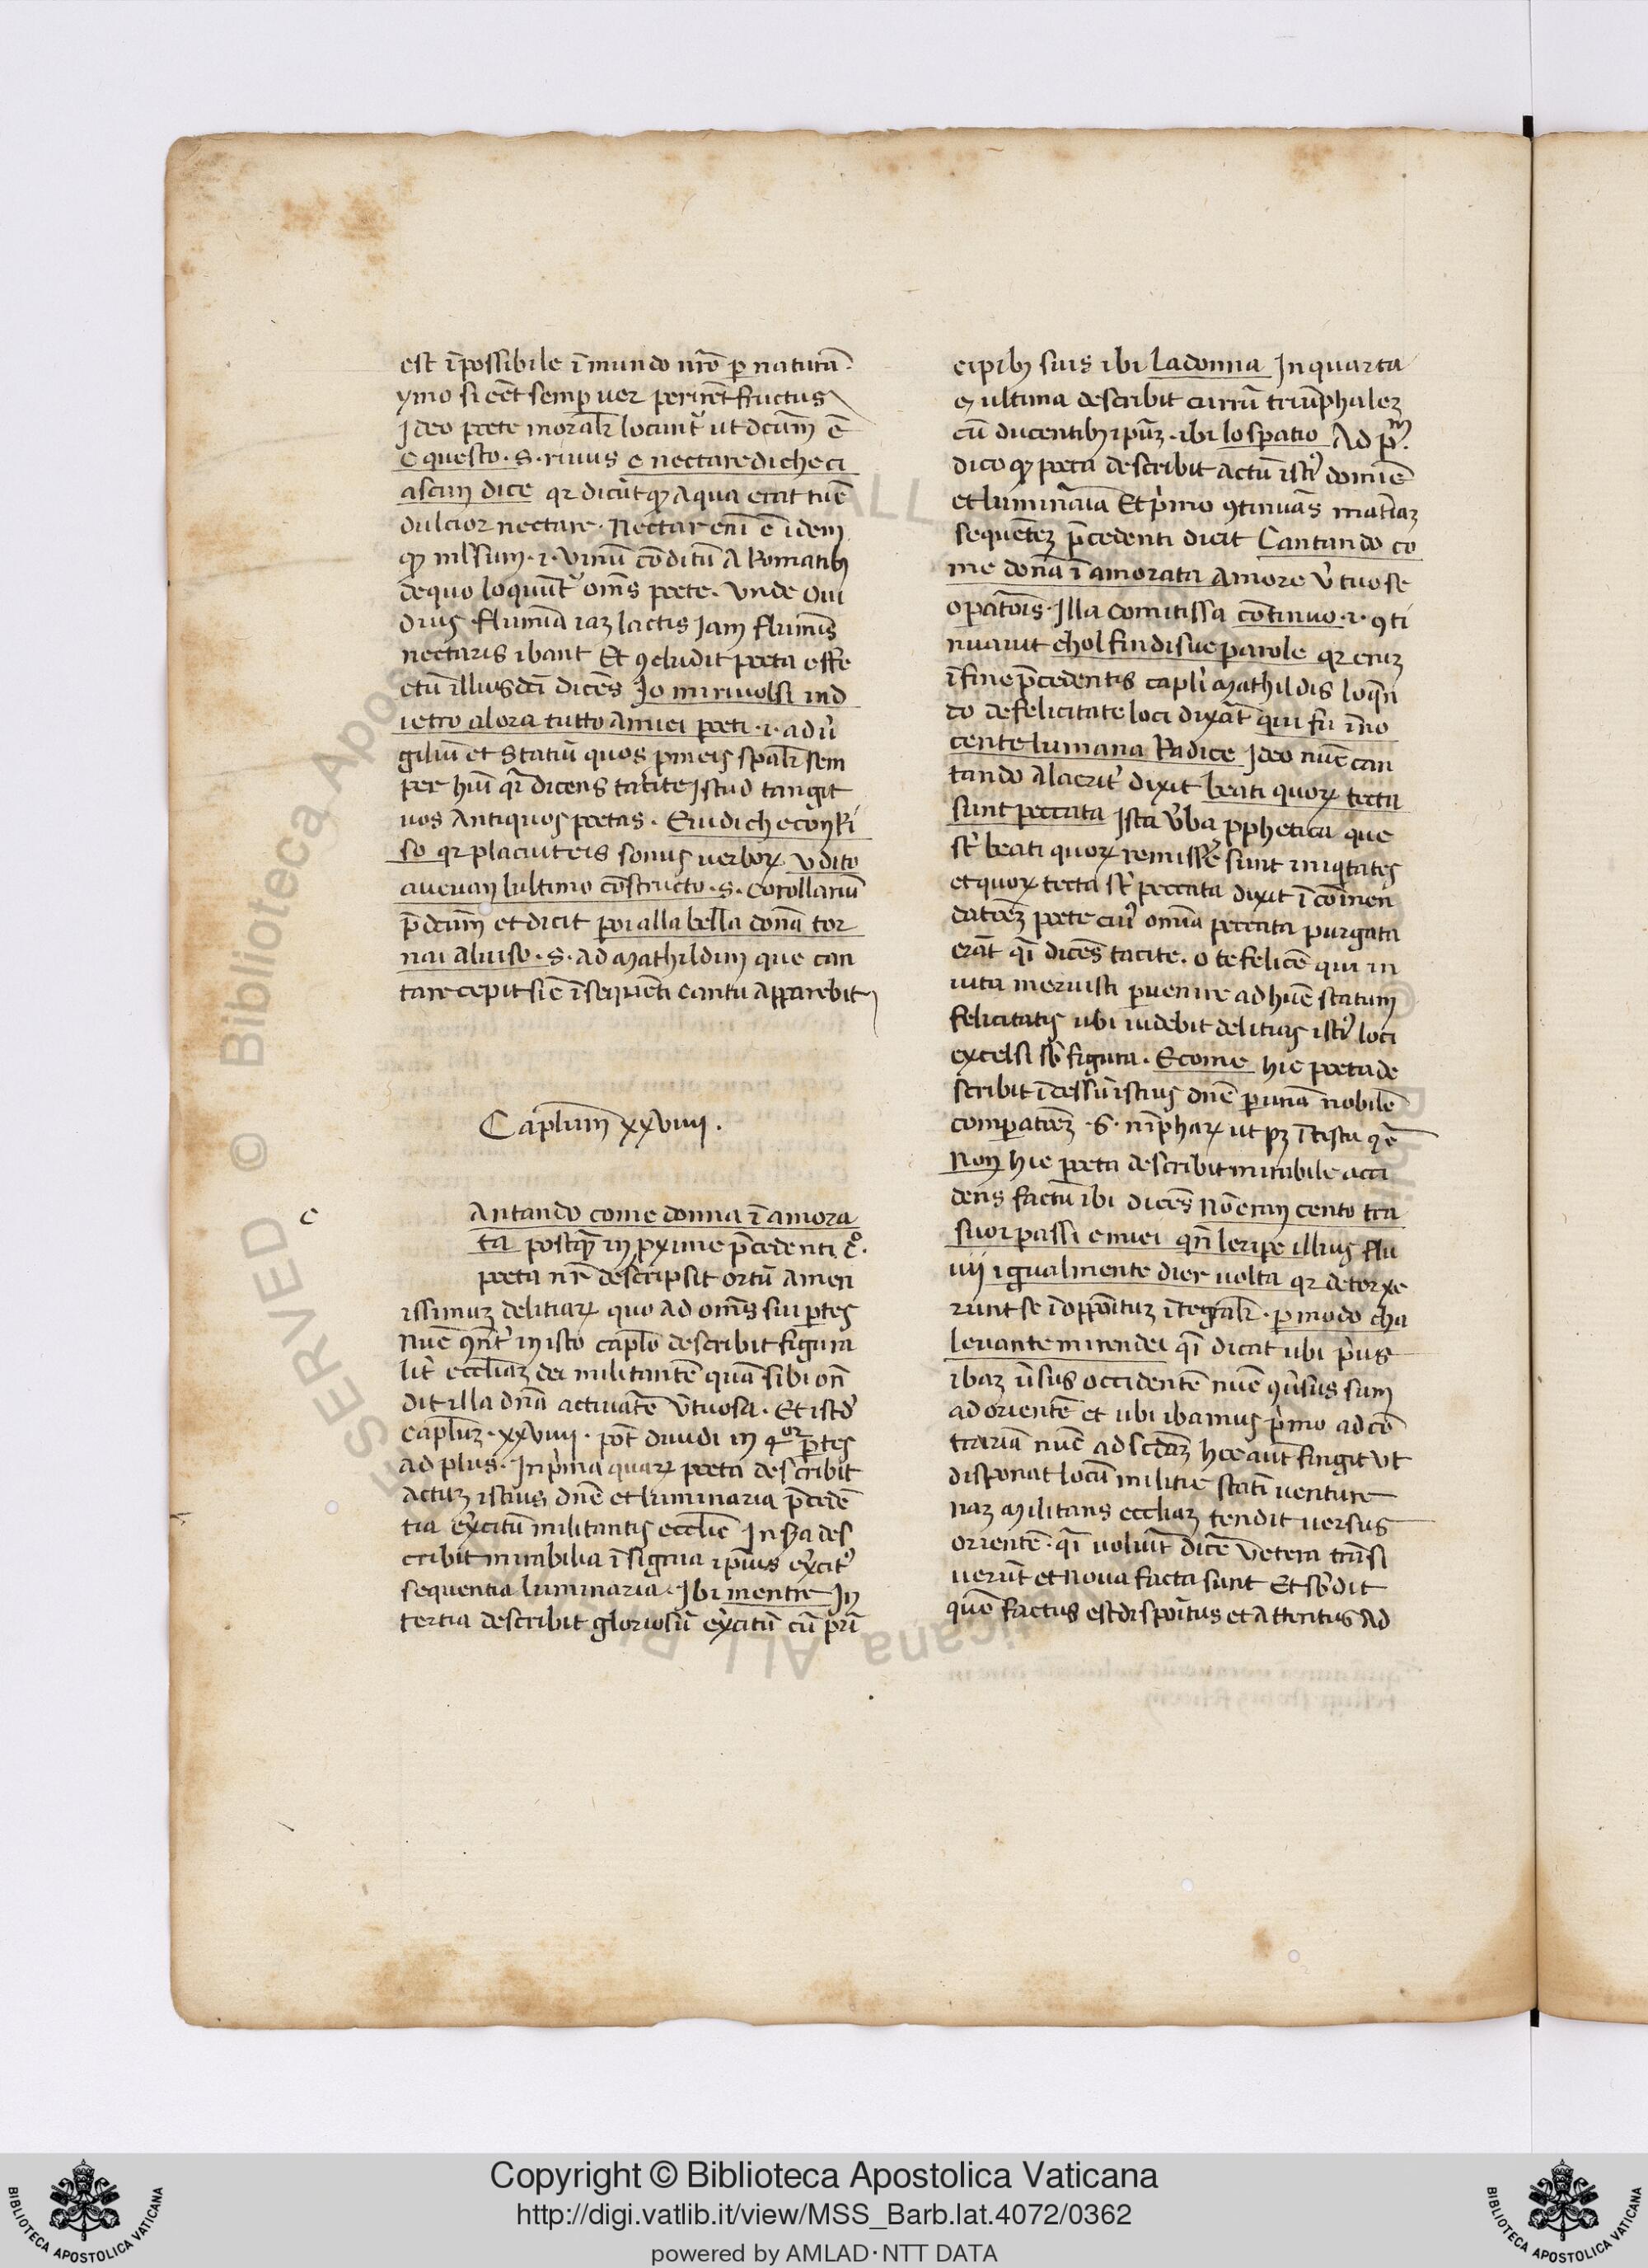 est īpossibile ī mundo nr̄o ꝑ naturā.
ymo si eēt semꝑ uer perirēt fructus
Jdeo poete moralr̄ locunt᷑ ut dc̄um ē
e questo . S . riuus e nectare di che ci
ascun dice qr dicūt ꝙ aqua erat tūc
dulcior nectare . Nectar eni ē idem
ꝙ mlsum . i . vinū cōditū aromatib᷒
de quo loquūt᷑ om̄s poete . vnde oui
dius . flumīa iaꝫ lactis Jam flumīs
nectaris ibant Et ꝯcludit poeta effe
ctū illius dc̄i dicēs Jo mi riuolsi ind
ietro alora tutto a miei poeti . i . ad v̄
giliū et Statiū quos p̄meis spalr̄ sem
per hui qi dicens tacite Jstud tangit
uos antiquos poetas . E uidi che con ri
so qr placuit eis sonus uerboꝝ . vdito
aueuan lultimo cōstructo . S . corollariū
p̄dc̄um et dicit poi alla bella donā tor
nai al uiso . S . ad mathildim que can
tare cepit sic ī sequēti cantu apparebit
Capl̄um xxviiii .
c
Antando come donna ī amora
ta postꝙ̄ in ꝓxime p̄cedenti c̊ .
poeta nr̄ descripsit ortū amen
issimuꝫ delitiaꝝ quo ad om̄s sui ꝑtes
Nūc ꝯn̄t᷑ in isto caplo describit figura
lit᷑ eccliaꝫ dei militantē quā sibi on̄
dit illa dn̄a actiuatē v̄tuosa . Et istd᷑
capl̄uꝫ . xxviiii . pōt diuidi in 4or ꝑtes
ad plus . In p̄ma quaꝝ poeta describit
actuꝫ istius dn̄e et luminaria p̄cedē
tia exc̄itū militantis ecclie In s̄da des
cribit mirabilia īsignia ipīus exc̄it᷒
sequentia luminaria . Jbi mentre In
tertia describit gloriosū exc̄itū cū pri
cipib᷒ suis ibi la donna In quarta
et ultima describit currū triūphaleꝫ
cū ducentib᷒ ipūꝫ . ibi lo spatio Ad pm̄.
dico ꝙ poeta describit actū isti᷒ domīe
et luminaīa Et p̄mo ꝯtinuās mat̄iaꝫ
sequētēꝫ p̄cedenti dicit Cantando co
me donā ī amorata amore v̄tuose
opat̄ois . Jlla comitissa cōtinuo . i . ꝯti
nuauit chol fin di sue parole qr cuꝫ
ī fine p̄cedentis capli mathildis loqn̄
do de felicitate loci dixāt qui fu īno
cente lumana Radice Jdeo nūc can
tando alacrit᷑ dixit beati quoꝝ tecta
sunt peccata Jsta v̄ba ꝓphetica que
st᷑ beati quoꝝ remisse sunt iniqtates
et quoꝝ tecta st᷑ peccata dixit ī cōmen
datōeꝫ poete cui᷒ omīa peccata purgata
erāt qi dicēs tacite . o te felicē qui in
uita meruisti ꝑuenire ad hūc statum
felicitatis ubi uidebit delitias isti᷒ loci
excelsi sb᷑ figura . E come hic poeta de
scribit īcessū istius dn̄e ꝑ unā nobilē
comꝑatōeꝫ . S . nīphaꝝ ut pꝫ ī lista qē
Non hic poeta describit mirabile acci
dens factū ibi dicēs Nō eran cento tra
suor passi e miei qn̄ le ripe illius flu
uij igualmente dier uolta qr detorxe
runt se ī oppoītuꝫ ītegralr̄ . ꝑ modo cha
leuante mi rendei qi dicat ubi p̄us
ibaꝫ v̄sus occidentē nūc ꝯu̓sus sum
ad orientē et ubi ibamus p̄mo ad cō
trariā nūc ad scdaꝫ hoc aut fingit vt
disponat locū militie stati uenture
naꝫ militans eccliaꝫ tendit uersus
orientē . qi uoluit dice vetera trāsi
uerūt et noua facta sunt Et sb᷑dit
quō factus est dispoītus et attentus ad
Copyright © Biblioteca Apostolica Vaticana
http://digi.vatlib.it/view/MSS_Barb.lat.4072/0362
powered by AMLAD·NTT DATA